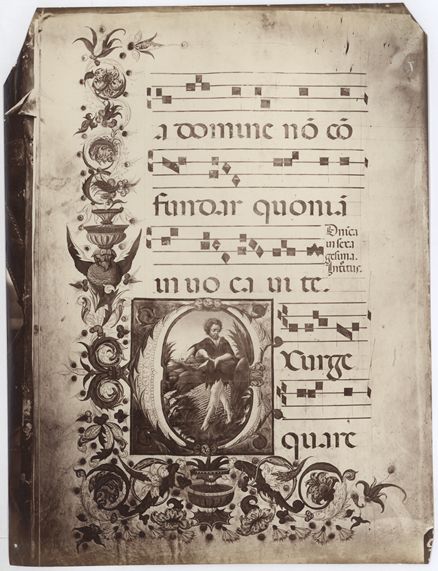 a domine nō cō
fundar quoniā
in uo ca ui te.
Dnica
in sexa
gesima.
Introitus.
Exurge
quare